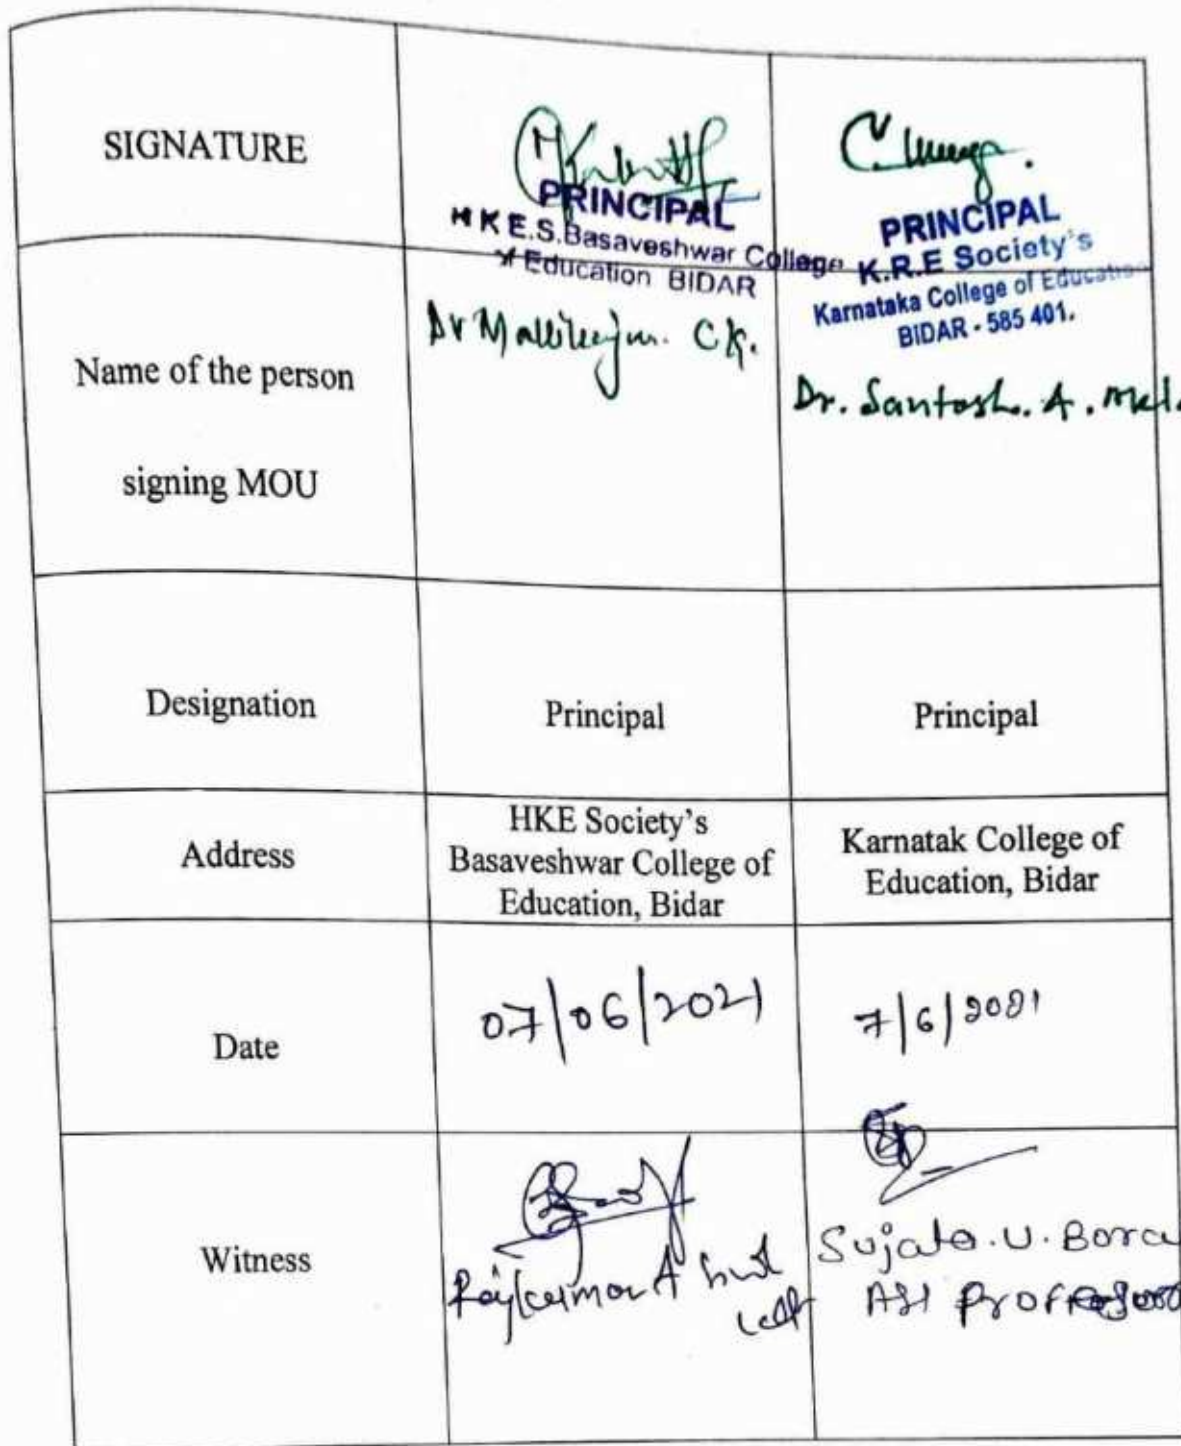 SIGNATURE
PRINCIPAL
H K E.S.Basaveshwar College
Education BIDAR
PRINCIPAL
K.R.E Society's
Karnataka College of Education
BIDAR - 585 401.
Name of the person
signing MOU
Dr C.K.
Dr. Santosh. A.
Designation
Principal
Principal
Address
HKE Society's
Basaveshwar College of
Education, Bidar
Karnatak College of
Education, Bidar
Date
07/06/2021
7/6/2021
Witness
Rajkumar A
Sujata.U.